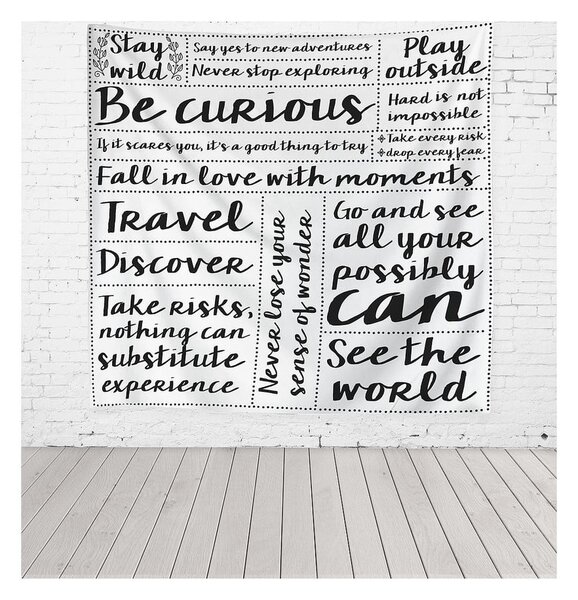 Stay
wild
Say yes to new adventures
Never stop exploring
Play
outside
Be curious
Hard is not
impossible
If it scares you, it's a good thing to try
Take every risk
drop every fear
Fall in love with moments
Travel
Discover
Take risks,
nothing can
substitute
experience
Never lose your
sense of wonder
Go and see
all your
possibly
can
See the
world